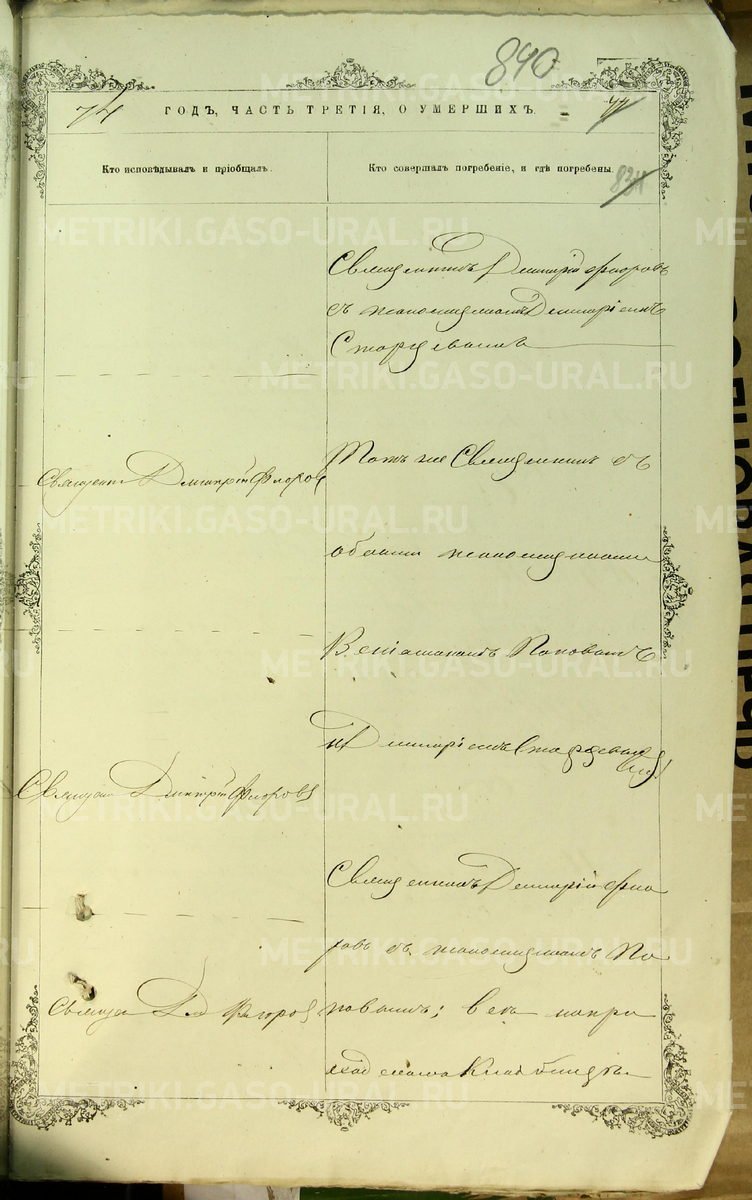 840
74
ГОДЪ, ЧАСТЬ ТРЕТІЯ, О УМЕРШИХЪ.
77
834
Кто исповѣдывалъ и пріобщалъ.
Кто совершалъ погребеніе, и гдѣ погребены.
Священникъ Димитрій Флоровъ
съ псаломщикомъ Димитріемъ
Старцевымъ
Священ Дмитрій Флоров
Тотъ же Священникъ съ
обоими псаломщиками
Веніаминомъ Поповымъ
и Димитріемъ Старцевым
Священ Дмитрій Флоровъ
Священникъ Димитрій Фло
ровъ съ псаломщикомъ По
Священ Дм Флоров
повымъ; всѣ на при
ходскомъ кладбищѣ
METRIKI.GASO-URAL.RU